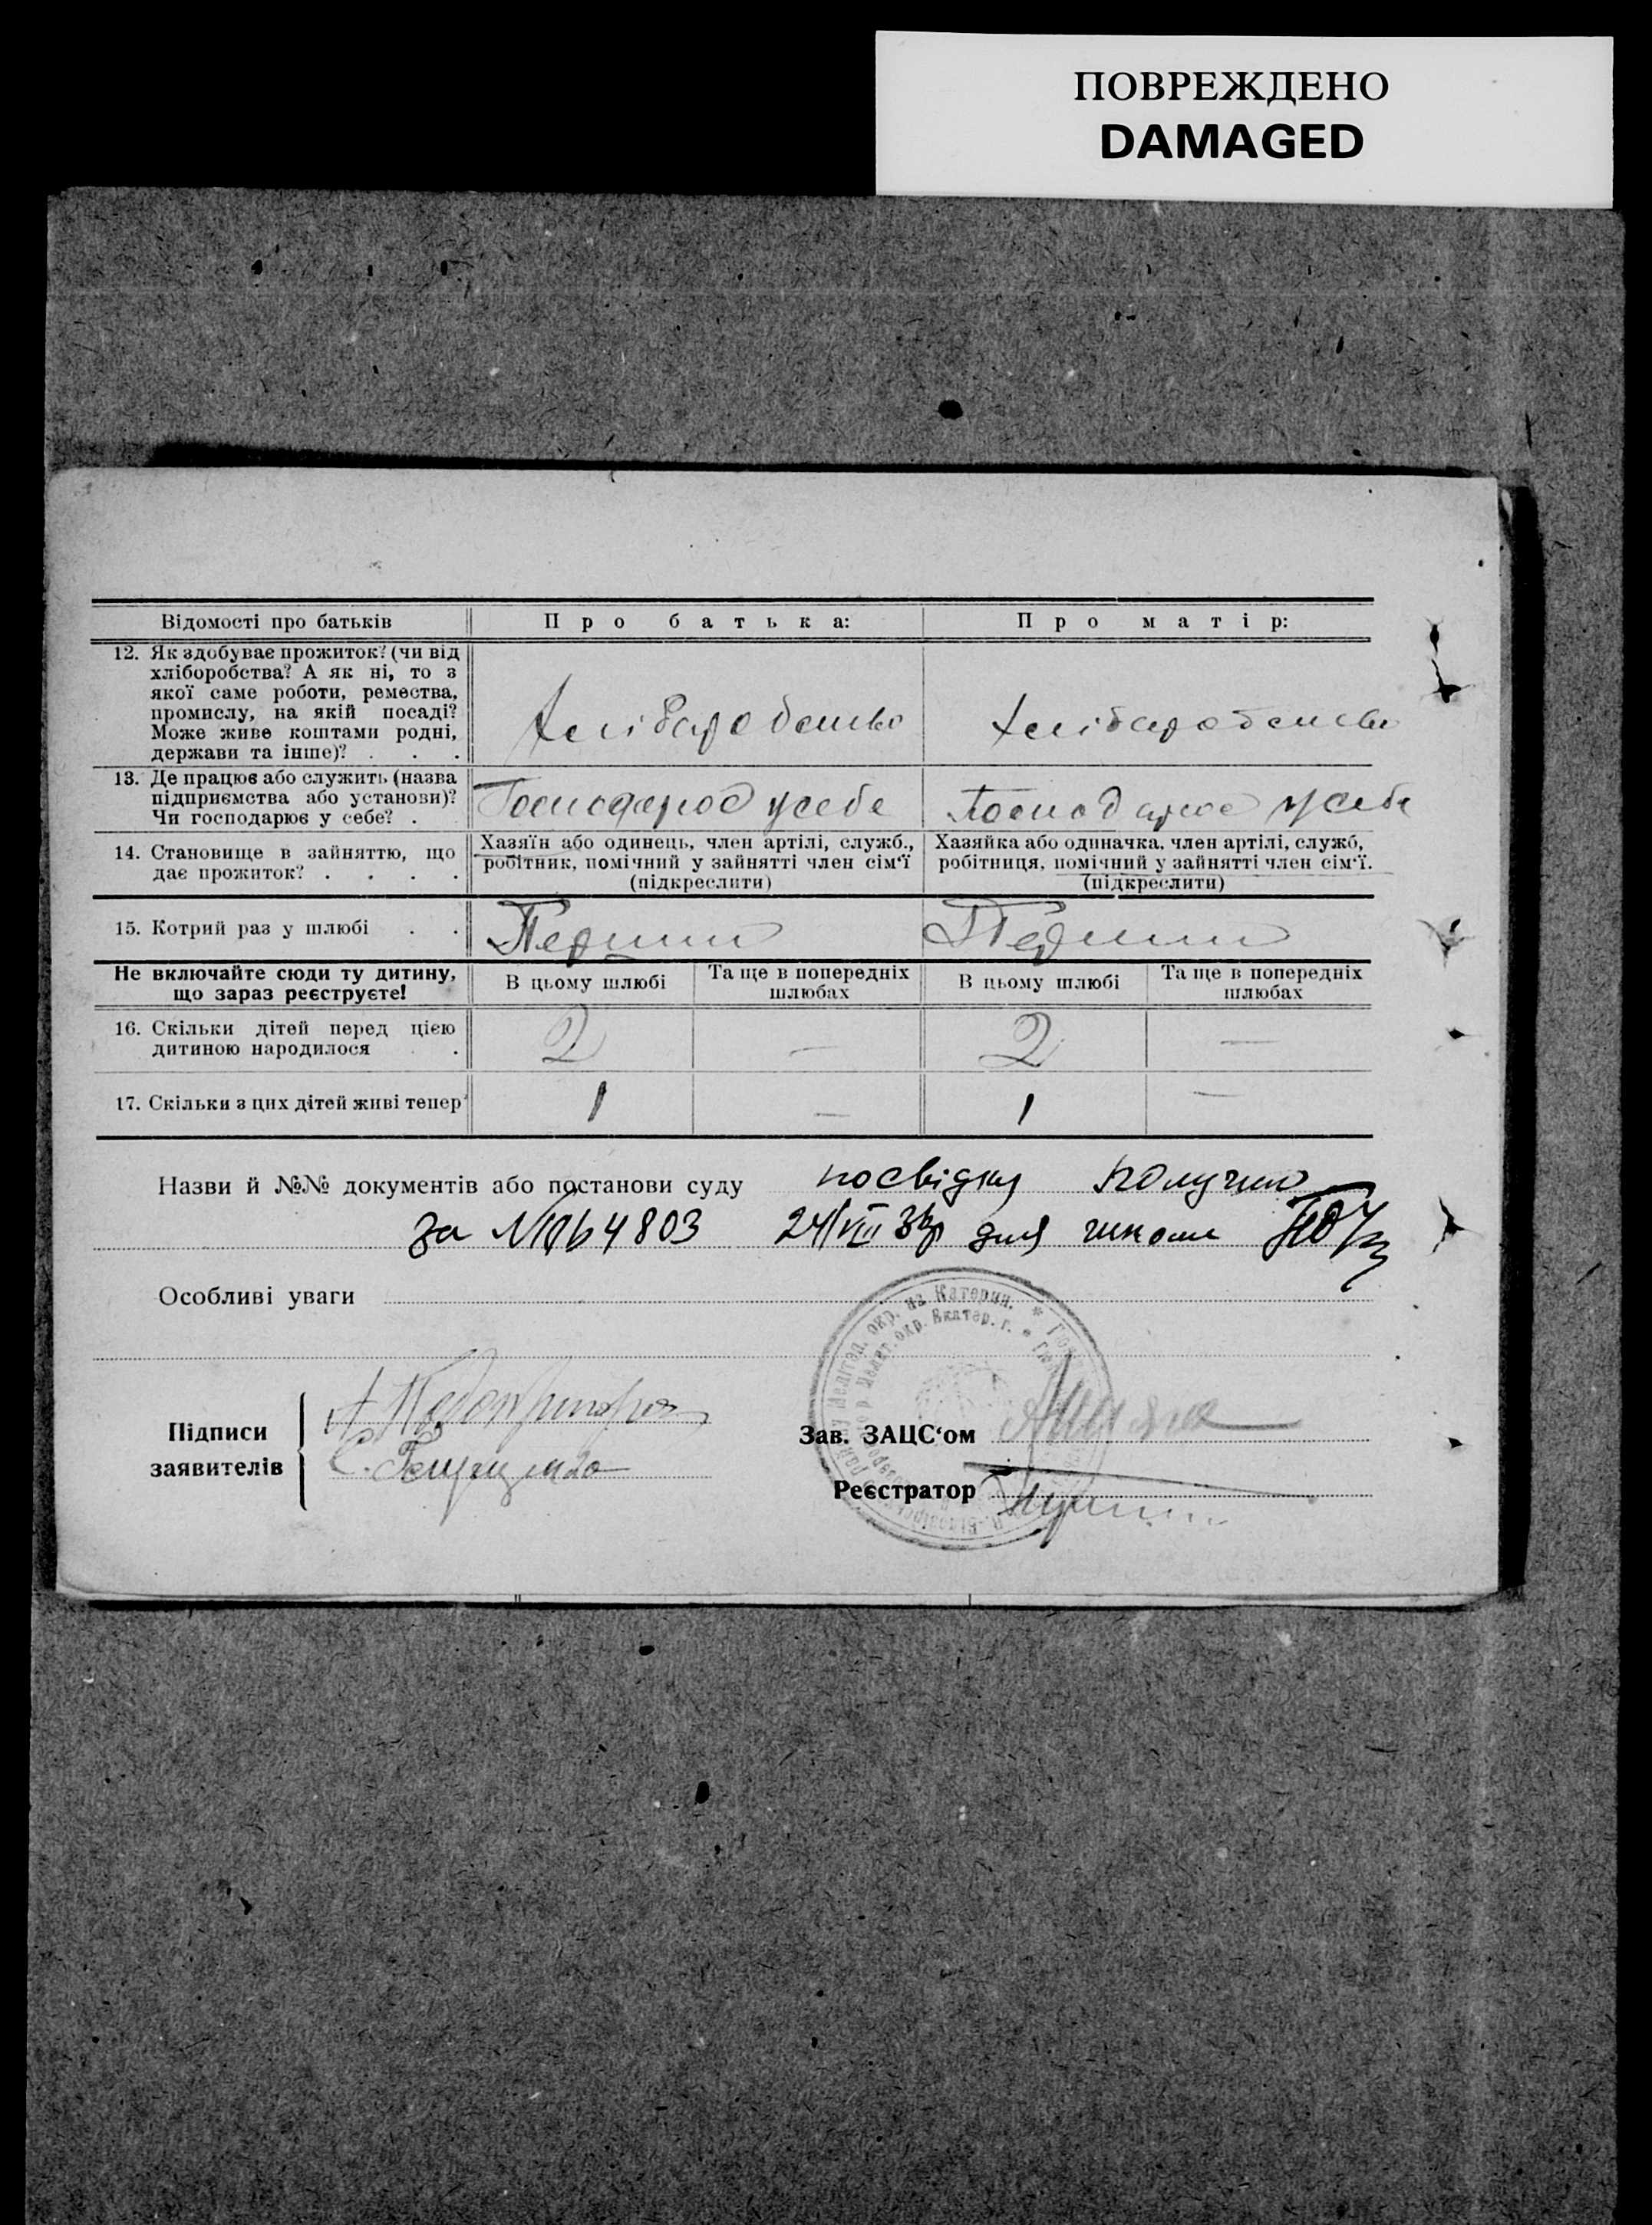 ПОВРЕЖДЕНО
DAMAGED
Відомості про батьків
Про батька:
Про матір:
12. Як здобуває прожиток? (чи від
хліборобства? А як ні, то з
якої саме роботи, ремества,
промислу, на якій посаді?
Може живе коштами родні,
держави та інше)? . . .
Хліборобство
Хліборобство
13. Де працює або служить (назва
підприємства або установи)?
Чи господарює у себе? .
Господарює у себе
Господарює у себе
14. Становище в зайняттю, що
дає прожиток? . . . .
Хазяїн або одинець, член артілі, служб.,
робітник, помічний у зайнятті член сім'ї
(підкреслити)
Хазяйка або одиначка, член артілі, служб,
робітниця, помічний у зайнятті член сім'ї.
(підкреслити)
15. Котрий раз у шлюбі . .
Перший
Перший
Не включайте сюди ту дитину,
що зараз реєструєте!
В цьому шлюбі
Та ще в попередніх
шлюбах
В цьому шлюбі
Та ще в попередніх
шлюбах
16. Скільки дітей перед цією
дитиною народилося .
2
—
2
—
17. Скільки з цих дітей живі тепер
1
—
1
—
Назви й №№ документів або постанови суду посвідку получив
за 4803 24/VIII для школи
Особливі уваги
Підписи
заявителів
Зав. ЗАЦС'ом
Реєстратор